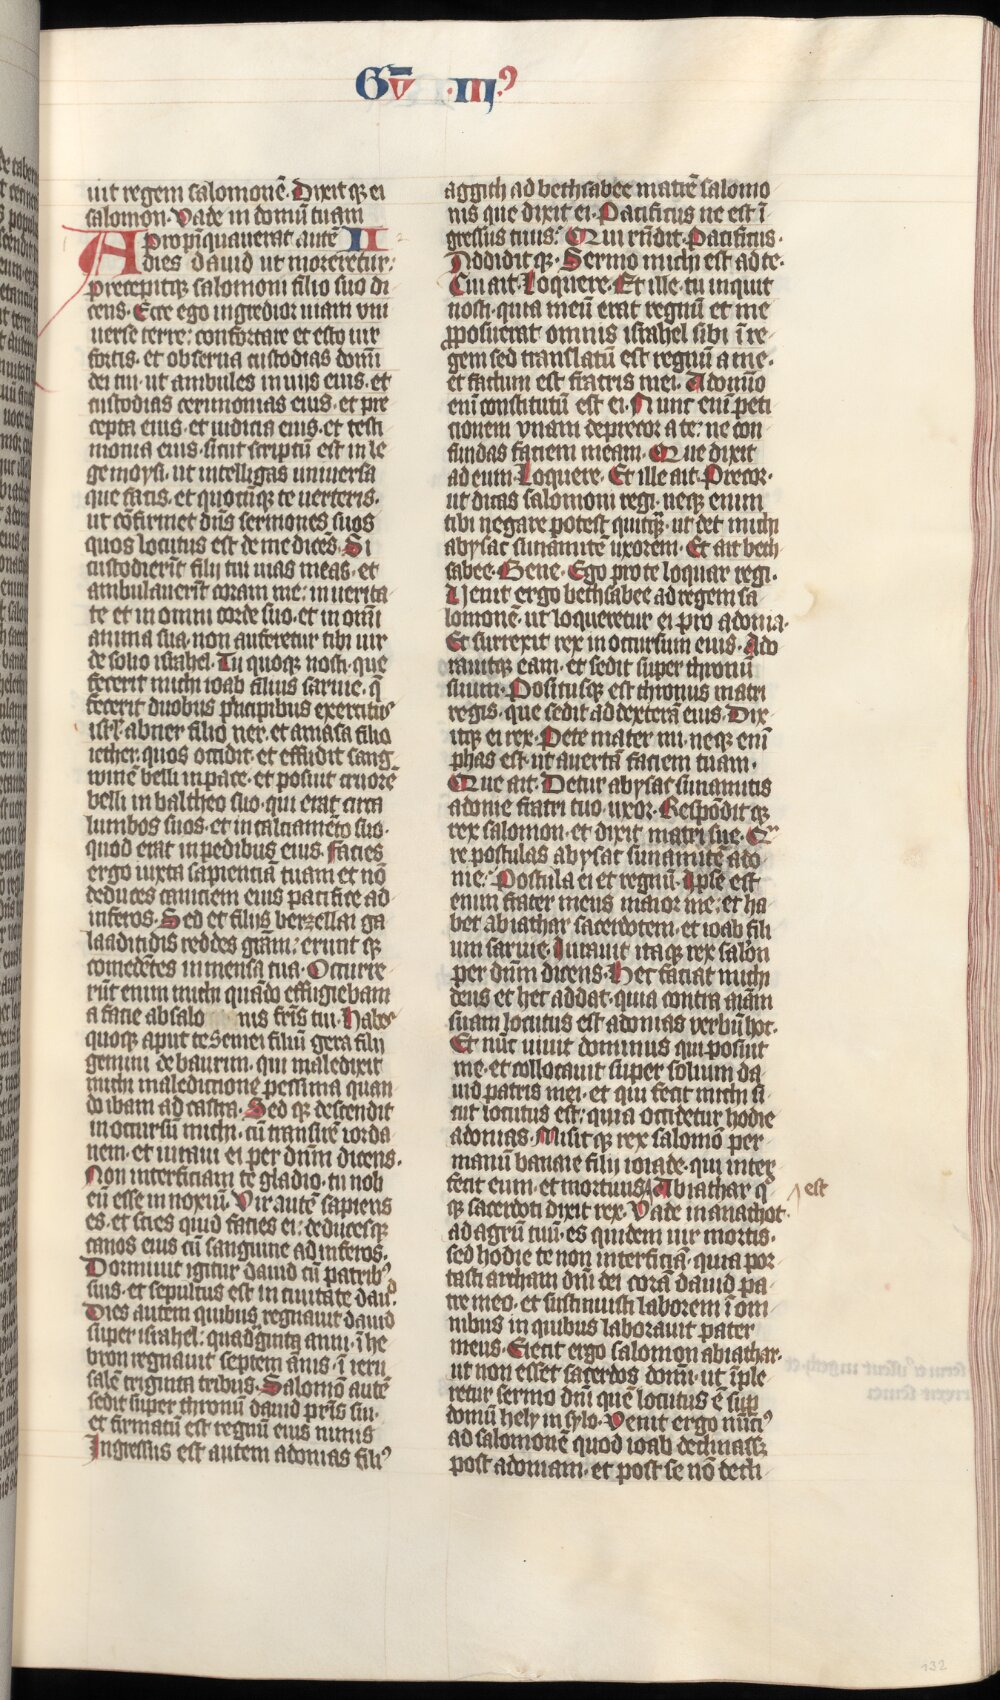 Gū · III⁹
uit regem salomonē. Dixit qꝫ ei
salomon. Vade in domū tuam
Apropīquauerat autē II
dies dauid ut moreretur:
precepitqꝫ salomoni filio suo di
cens. Ecce ego ingredior uiam vni
uerse terre: confortare et esto uir
fortis. et obserua custodias domī
dei tui. ut ambules in uijs eius. et
custodias cerimonias eius. et pre
cepta eius. et iudicia eius. et testi
monia eius. sicut scriptū est in le
ge moysi. ut intelligas uniuersa
que facis. et quocūqꝫ te uerteris.
ut cōfirmet dn̄s sermones suos
quos locutus est de me dicēs. Si
custodierīt filij tui uias meas. et
ambulauerīt coram me: in uerita
te et in omni corde suo. et in om̄i
anima sua. non auferetur tibi uir
de solio israhel. Tu quoqꝫ nosti. que
fecerit michi ioab filius saruie. q̄
fecerit duobus pͥncipibus exercitus
isrl. abner filio ner. et amasa filio
iether. quos occidit. et effudit sang
winē belli in pace. et posuit cruorē
belli in baltheo suo. qui erat circa
lumbos suos. et in calciamēto suo.
quod erat in pedibus eius. Facies
ergo iuxta sapienciā tuam et nō
deduces caniciem eius pacifice ad
inferos. Sed et filijs berzellai ga
laaditidis reddes grām: erunt qꝫ
comedētes in mensa tua. Occurre
rūt enim michi quādo effugiebam
a facie absalo nis fr̄is tui. Habes
quoqꝫ aput te Semei filiū gera filij
gemini de baurim. qui maledixit
michi maledictionē pessima quan
do ibam ad castra. Sed qꝫ descendit
in occursū michi. cū transirē iorda
nem. et iuraui ei per dn̄m dicens.
Non interficiam te gladio. tu noli
eū esse innoxiū. Vir autē sapiens
es. et scies quid facies ei: deducesqꝫ
canos eius cū sanguine ad inferos.
Dormiuit igitur dauid cū patrib⁹
suis. et sepultus est in ciuitate dauͩ.
Dies autem quibus regnauit dauid
super israhel: quadͣginta anni. ī he
bron regnauit septem ānis. ī ieru
salē triginta tribus. Salomō autē
sedit super thronū dauid pr̄is sui.
et firmatū est regnū eius nimis
Ingressus est autem adonias fili⁹
aggith ad bethsabee matrē salomo
nis que dixit ei. Pacificus ne est ī
gressus tuus? Qui rn̄dit. Pacificus.
Addidit qꝫ. Sermo michi est ad te.
Cui ait. Loquere. Et ille. tu inquit
nosti. quia meū erat regnū et me
ꝓposuerat omnis israhel sibi ī re
gem sed translatū est regnū a me.
et factum est fratris mei. A domīo
enī constitutū est ei. Nunc enī peti
cionem vnam deprecor a te: ne con
fundas faciem meam. Que dixit
ad eum. Loquere. Et ille ait. Precor.
ut dicas salomoni regi. neqꝫ enim
tibi negare potest quicqꝫ. ut det michi
abysac sunamitē vxorem. Et ait beth
sabee. Bene. Ego pro te loquar regi.
Uenit ergo bethsabee ad regem sa
lomonē. ut loqueretur ei pro adonia.
Et surrexit rex in occursum eius. Ado
rauitqꝫ eam. et sedit super thronū
suum. Positusqꝫ est thronus matri
regis. que sedit ad dexterā eius. Dix
itqꝫ ei rex. Pete mater mi. neqꝫ enī
phas est. ut auertā faciem tuam.
Que ait. Detur abysac sunamitis
adonie fratri tuo uxor. Respōdit qꝫ
rex salomon. et dixit matri sue. Qͣ
re postulas abysac sunamitē ado
nie? Postula ei et regnū. Ipse est
enim frater meus maior me. et ha
bet abiathar sacerdotem. et ioab fili
um saruie. Iurauit itaqꝫ rex salōn
per dn̄m dicens. Hec faciat michi
deus et hec addat. quia contra aīam
suam locutus est adonias verbū hoc.
Et nūc uiuit dominus qui posuit
me. et collocauit super solium da
uid patris mei. et qui fecit michi si
cut locutus est: quia occidetur hodie
adonias. Misit qꝫ rex salomō per
manū banaie filij ioiade. qui inter
fecit eum. et mortuus. Abiathar q͛ est
qꝫ sacerdoti dixit rex. Vade in anathot
ad agrū tuū. es quidem uir mortis.
sed hodie te non interficiā. quia por
tasti archam dn̄i dei corā dauid pa
tre meo. et sustinuisti laborem ī om
nibus in quibus laborauit pater
meus. Eiecit ergo salomon abiathar.
ut non esset sacerdos domī. ut īple
retur sermo dn̄i quē locutus ē sup̄
domū hely in sylo. Venit ergo nūci⁹
ad salomonē quod ioab declinassꝫ
post adoniam. et post se nō decli
132